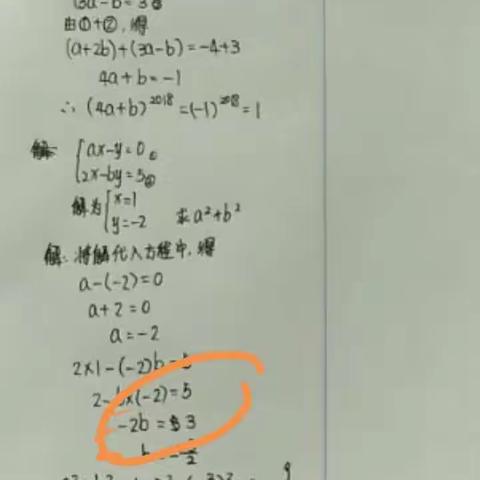 3a-b=3②
由①+②,得
(a+2b)+(3a-b)=-4+3
4a+b=-1
∴(4a+b)²⁰¹⁸=(-1)²⁰¹⁸=1
{ax-y=0①
2x-by=5②
解为{x=1
y=-2 求a²+b²
解:将解代入方程中,得
a-(-2)=0
a+2=0
a=-2
2×1-(-2)b=5
2-b×(-2)=5
-2b=3